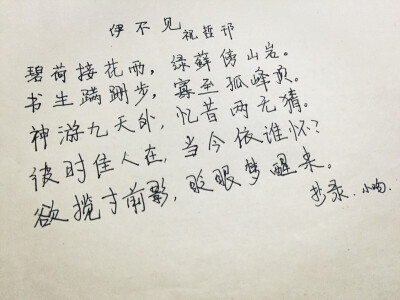 伊不见 祝哲祁
碧荷接花雨，绿藓傍山岩。
书生蹒跚步，寡至孤峰页。
神游九天外，忆昔两无猜。
彼时佳人在，当今依谁怀？
欲揽寸前影，眨眼梦醒来。
抄录.小昫.